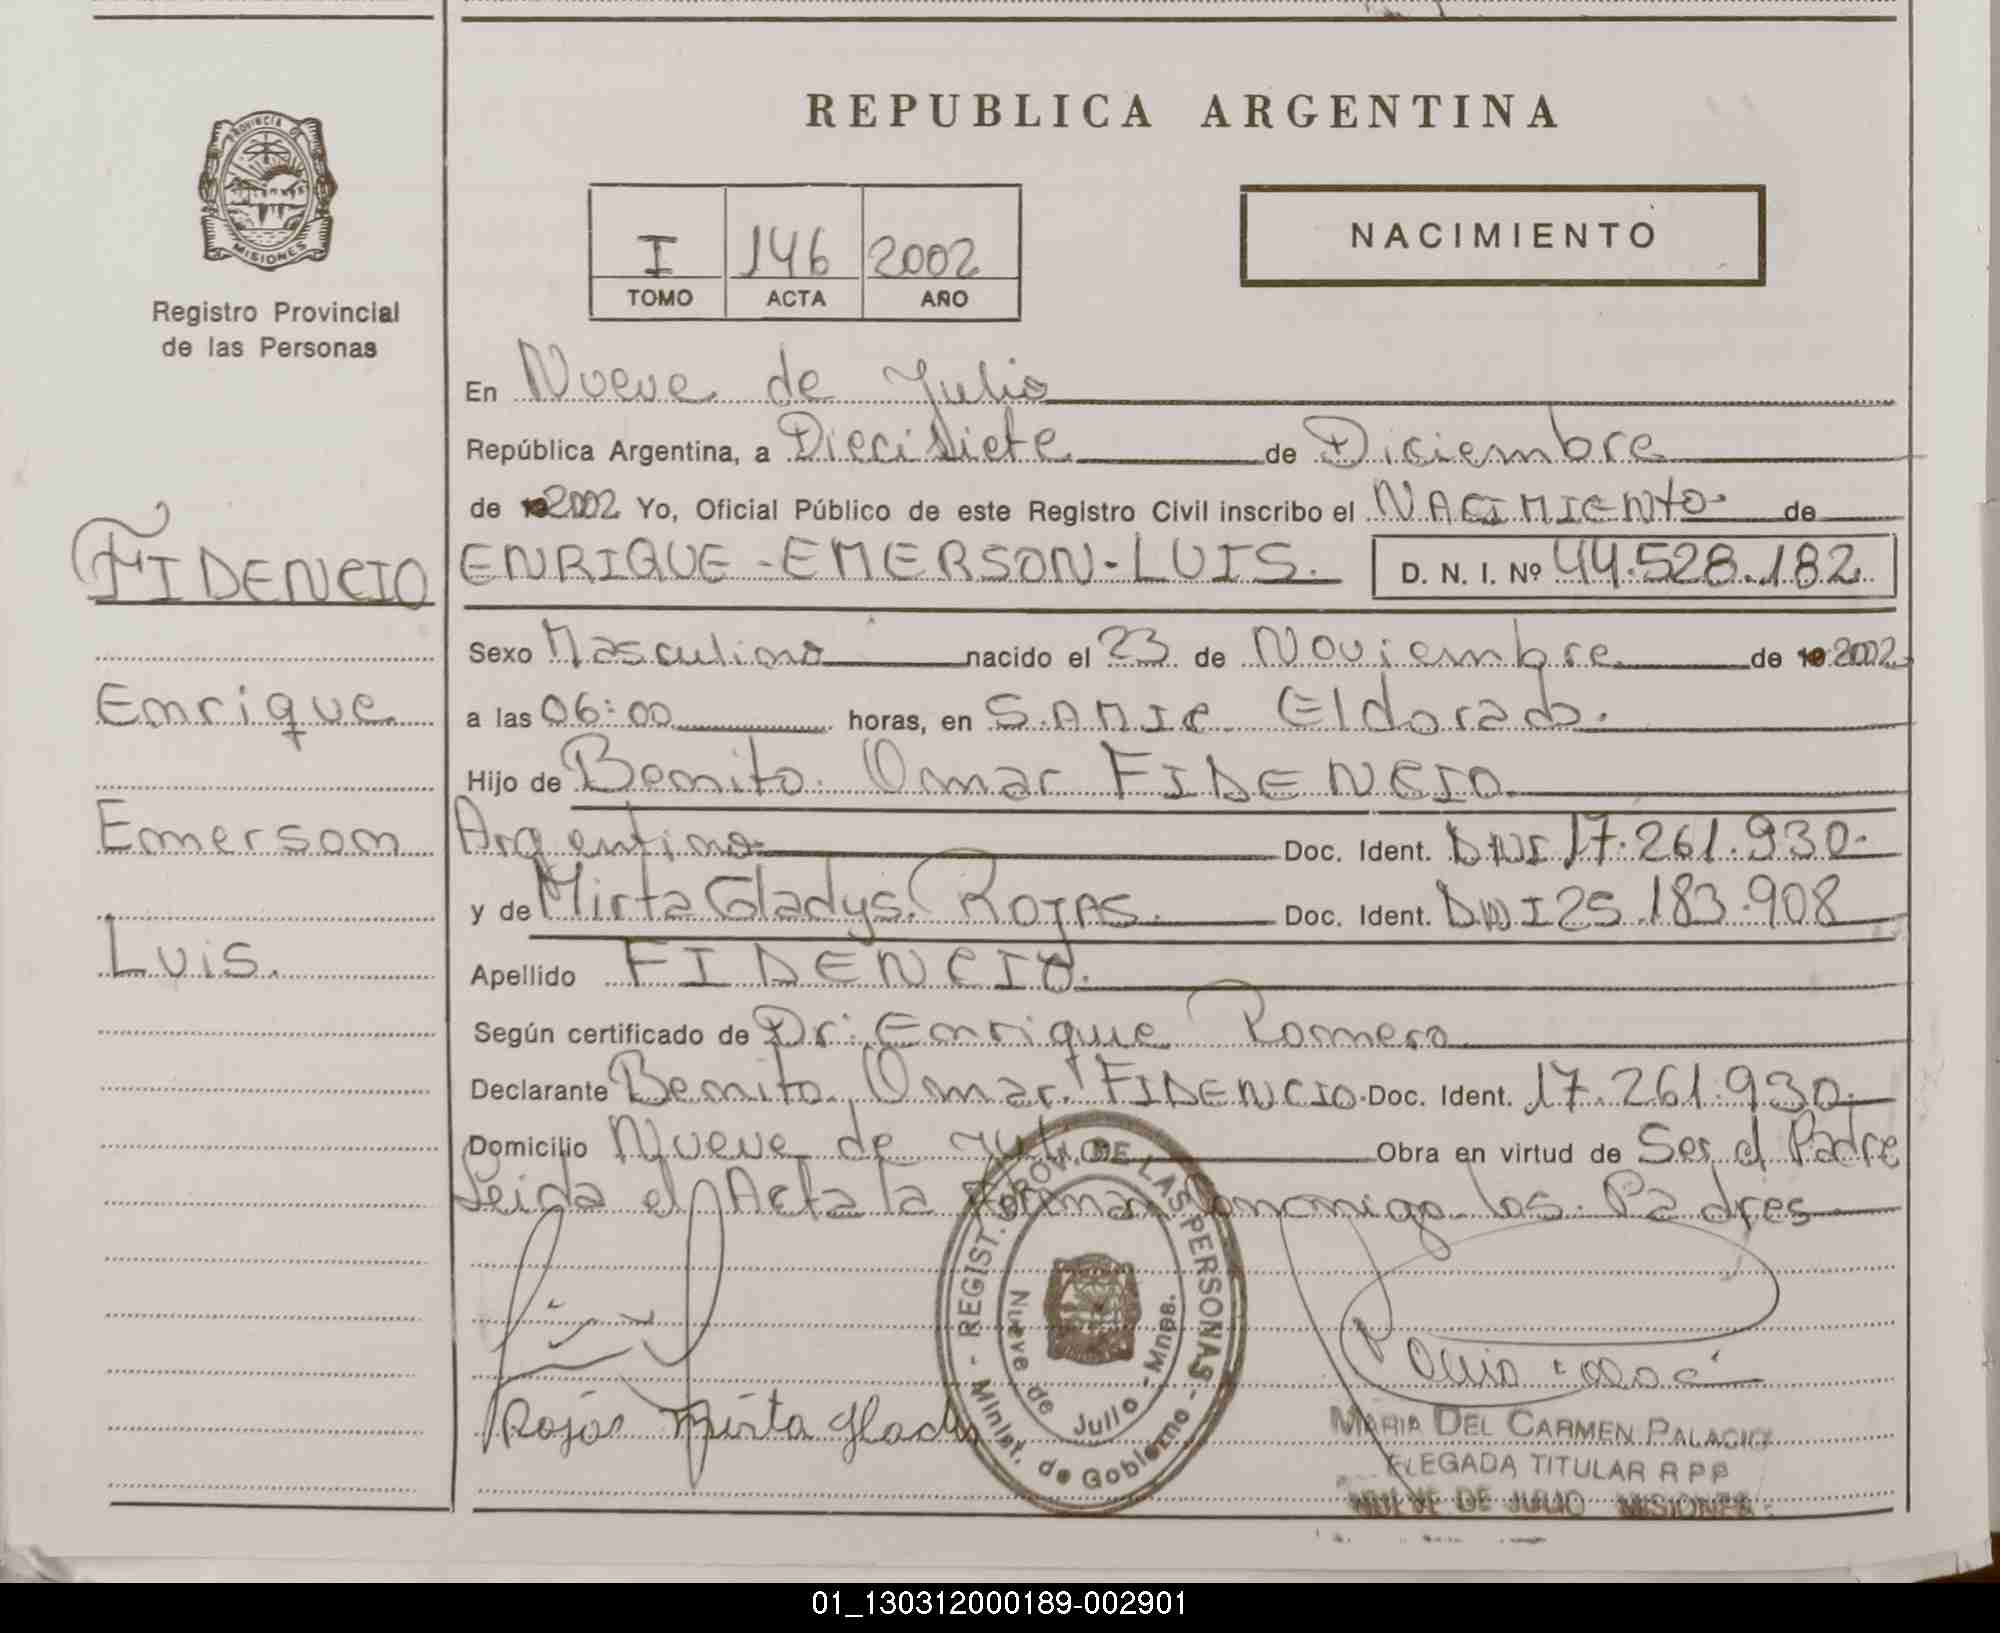 REPUBLICA ARGENTINA
PROVINCIA DE
MISIONES
Registro Provincial
de las Personas
I 146 2002
TOMO ACTA AÑO
NACIMIENTO
En Nueve de Julio
República Argentina, a Diecisiete de Diciembre
de 2002 Yo, Oficial Público de este Registro Civil inscribo el NACIMIENTO de
ENRIQUE-EMERSON-LUIS. D. N. I. Nº 44.528.182
Sexo Masculino nacido el 23 de Noviembre de 2002
a las 06:00 horas, en S.AMIC Eldorado.
Hijo de Benito Omar FIDENCIO
Argentino Doc. Ident. DNI 17.261.930.
y de Mirta Gladys. ROJAS. Doc. Ident. DNI 25.183.908
Apellido FIDENCIO.
Según certificado de Dr: Enrique Romero
Declarante Benito Omar FIDENCIO. Doc. Ident. 17.261.930.
Domicilio Nueve de Julio Obra en virtud de Ser el Padre
Leida el Acta la firman conmigo los Padres
FIDENCIO
Enrique
Emerson
Luis.
Rojas Mirta Gladys
- REGIST. PROV. DE LAS PERSONAS -
Minist. de Gobierno
Nueve de Julio - Mnes.
MARIA DEL CARMEN PALACIO
DELEGADA TITULAR R P P
NUEVE DE JULIO MISIONES
01_130312000189-002901